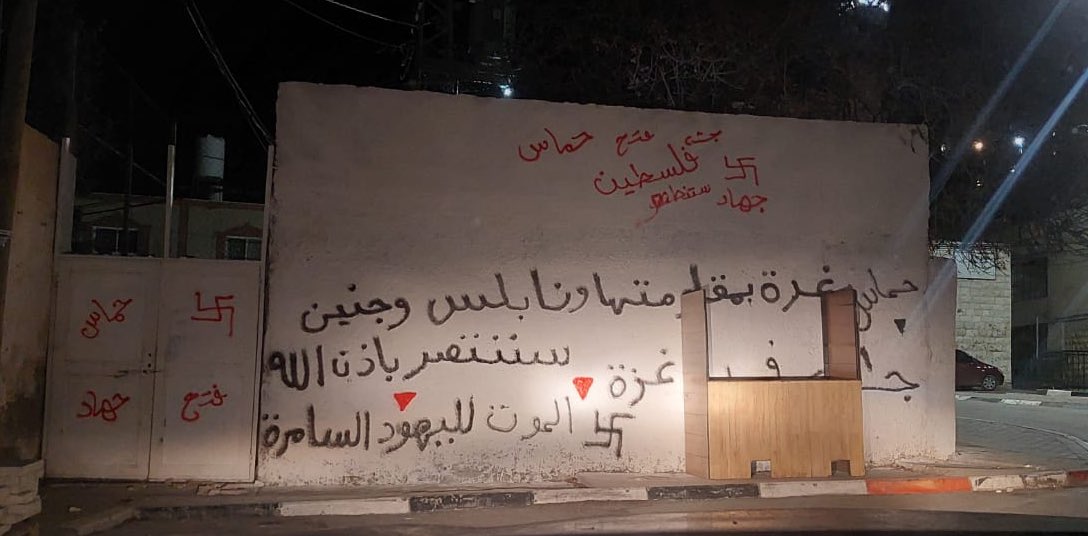 جبهه فتح حماس
فلسطين
جهاد
حماس غزة بمقاومتها ونابلس وجنين
ستنتصر باذن الله
غزة
الموت لليهود السامرة
حماس
جهاد فتح